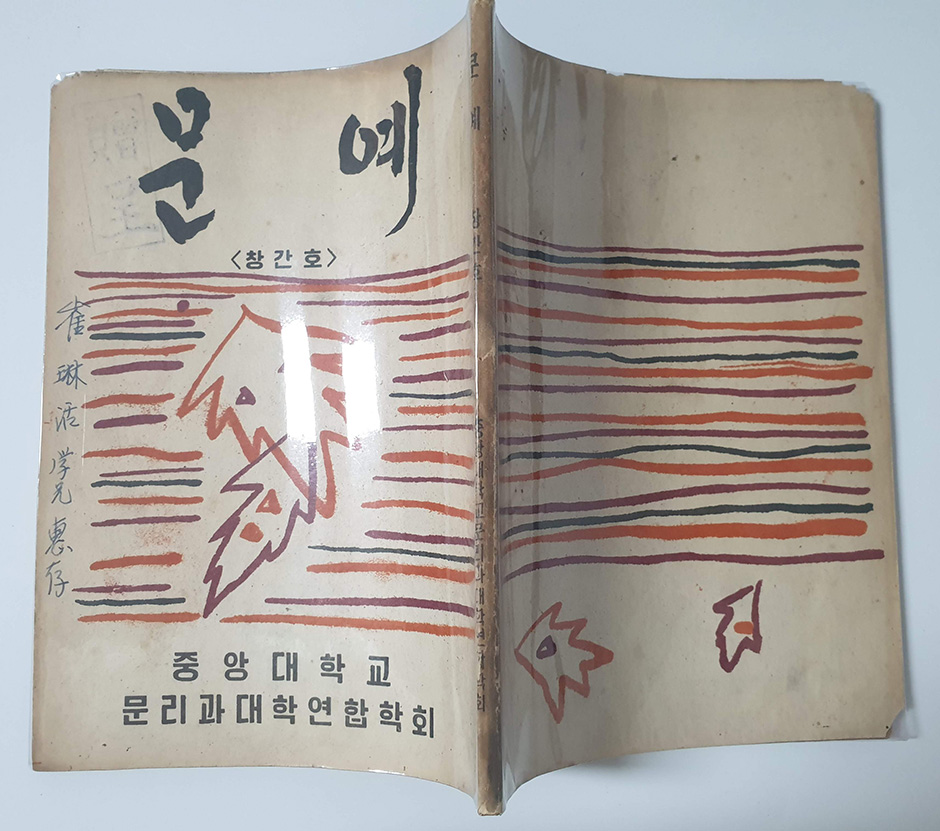 문예
<창간호>
崔琳活学兄惠存
중앙대학교
문리과대학연합학회
문예 창간호 중앙대학교문리과대학연합학회